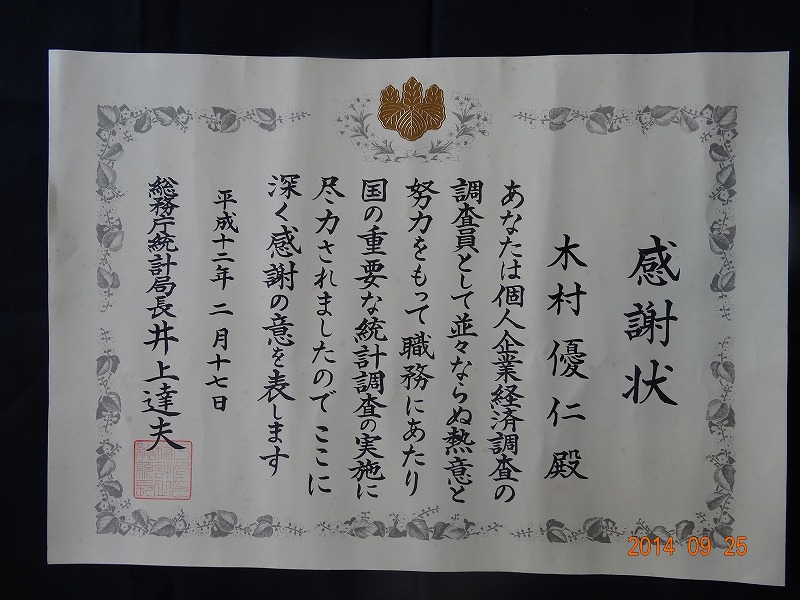 感謝状
木村優仁殿
あなたは個人企業経済調査の
調査員として並々ならぬ熱意と
努力をもって職務にあたり
国の重要な統計調査の実施に
尽力されましたのでここに
深く感謝の意を表します
平成十二年二月十七日
総務庁統計局長井上達夫
2014 09 25